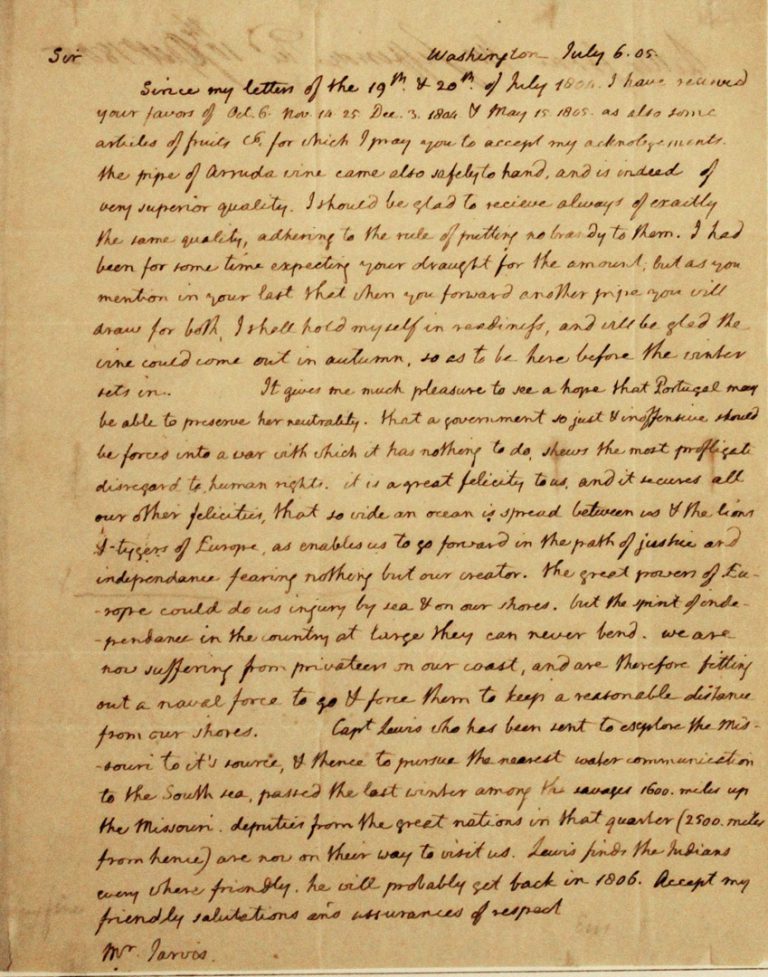 Sir Washington July 6. 05.
Since my letters of the 19th. & 20th. of July 1804. I have recieved
your favors of Oct. 6. Nov. 14. 25. Dec. 3. 1804. & May 15. 1805. as also some
articles of fruits &c. for which I pray you to accept my acknolegements.
the pipe of Arruda wine came also safely to hand, and is indeed of
very superior quality. I should be glad to recieve always of exactly
the same quality, adhering to the rule of putting no brandy to them. I had
been for some time expecting your draught for the amount, but as you
mention in your last that when you forward another pipe you will
draw for both, I shall hold myself in readiness, and will be glad the
wine could come out in autumn, so as to be here before the winter
sets in. It gives me much pleasure to see a hope that Portugal may
be able to preserve her neutrality. that a government so just & inoffensive should
be forced into a war with which it has nothing to do, shews the most profligate
disregard to human rights. it is a great felicity to us, and it secures all
our other felicities, that so wide an ocean is spread between us & the lions
& tygers of Europe, as enables us to go forward in the path of justice and
independance fearing nothing but our creator. the great powers of Eu-
-rope could do us injury by sea & on our shores. but the spirit of inde-
-pendance in the country at large they can never bend. we are
now suffering from privateers on our coast, and are therefore fitting
out a naval force to go & force them to keep a reasonable distance
from our shores. Capt Lewis who has been sent to explore the Mis-
-souri to it's source, & thence to pursue the nearest water communication
to the South sea, passed the last winter among the savages 1600. miles up
the Missouri. deputies from the great nations in that quarter (2500. miles
from hence) are now on their way to visit us. Lewis finds the Indians
every where friendly. he will probably get back in 1806. Accept my
friendly salutations and assurances of respect
Mr. Jarvis.